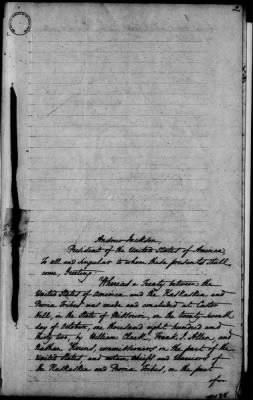 Andrew Jackson,
President of the United States of America,
To all and singular to whom these presents shall
come, Greeting:
Whereas a Treaty between the
United States of America and the Kaskaskia and
Peoria Tribes was made and concluded at Castor
Hill, in the State of Missouri, on the twenty seventh
day of October, one thousand eight hundred and
thirty two, by William Clark, Frank J. Allen, and
Nathan Kouns, commissioners on the part of the
United States and certain chiefs and warriors of
the Kaskaskia and Peoria Tribes, on the part
of